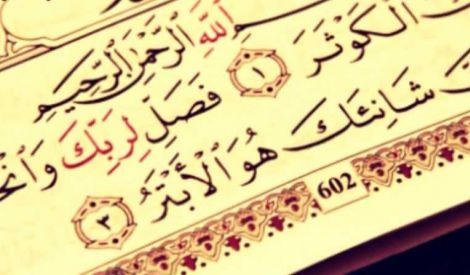 الله الرَّحْمَٰنِ الرَّحِيمِ
الْكَوْثَرَ ١ فَصَلِّ لِرَبِّكَ
شَانِئَكَ هُوَ الْأَبْتَرُ ٣
602